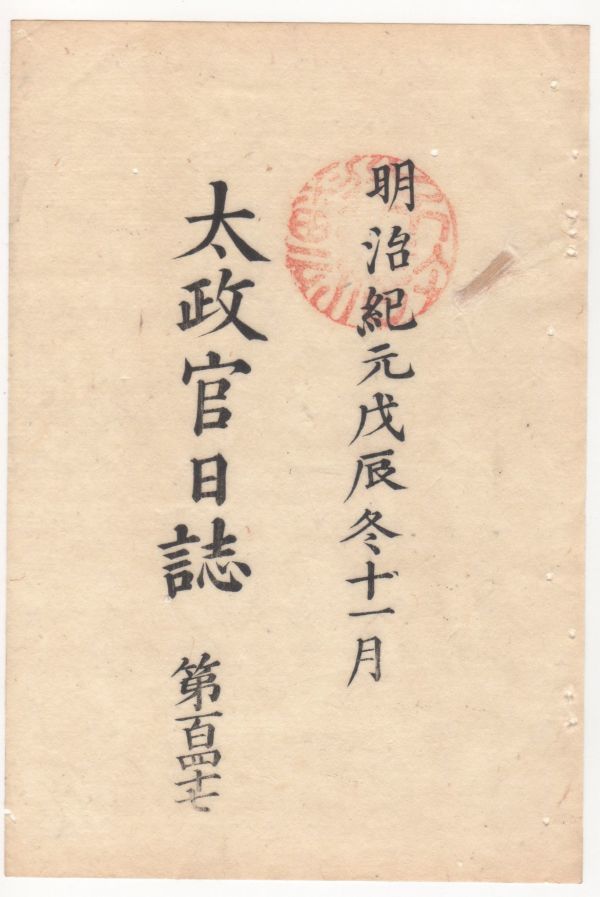 明治紀元戊辰冬十一月
太政官日誌 第百四十七